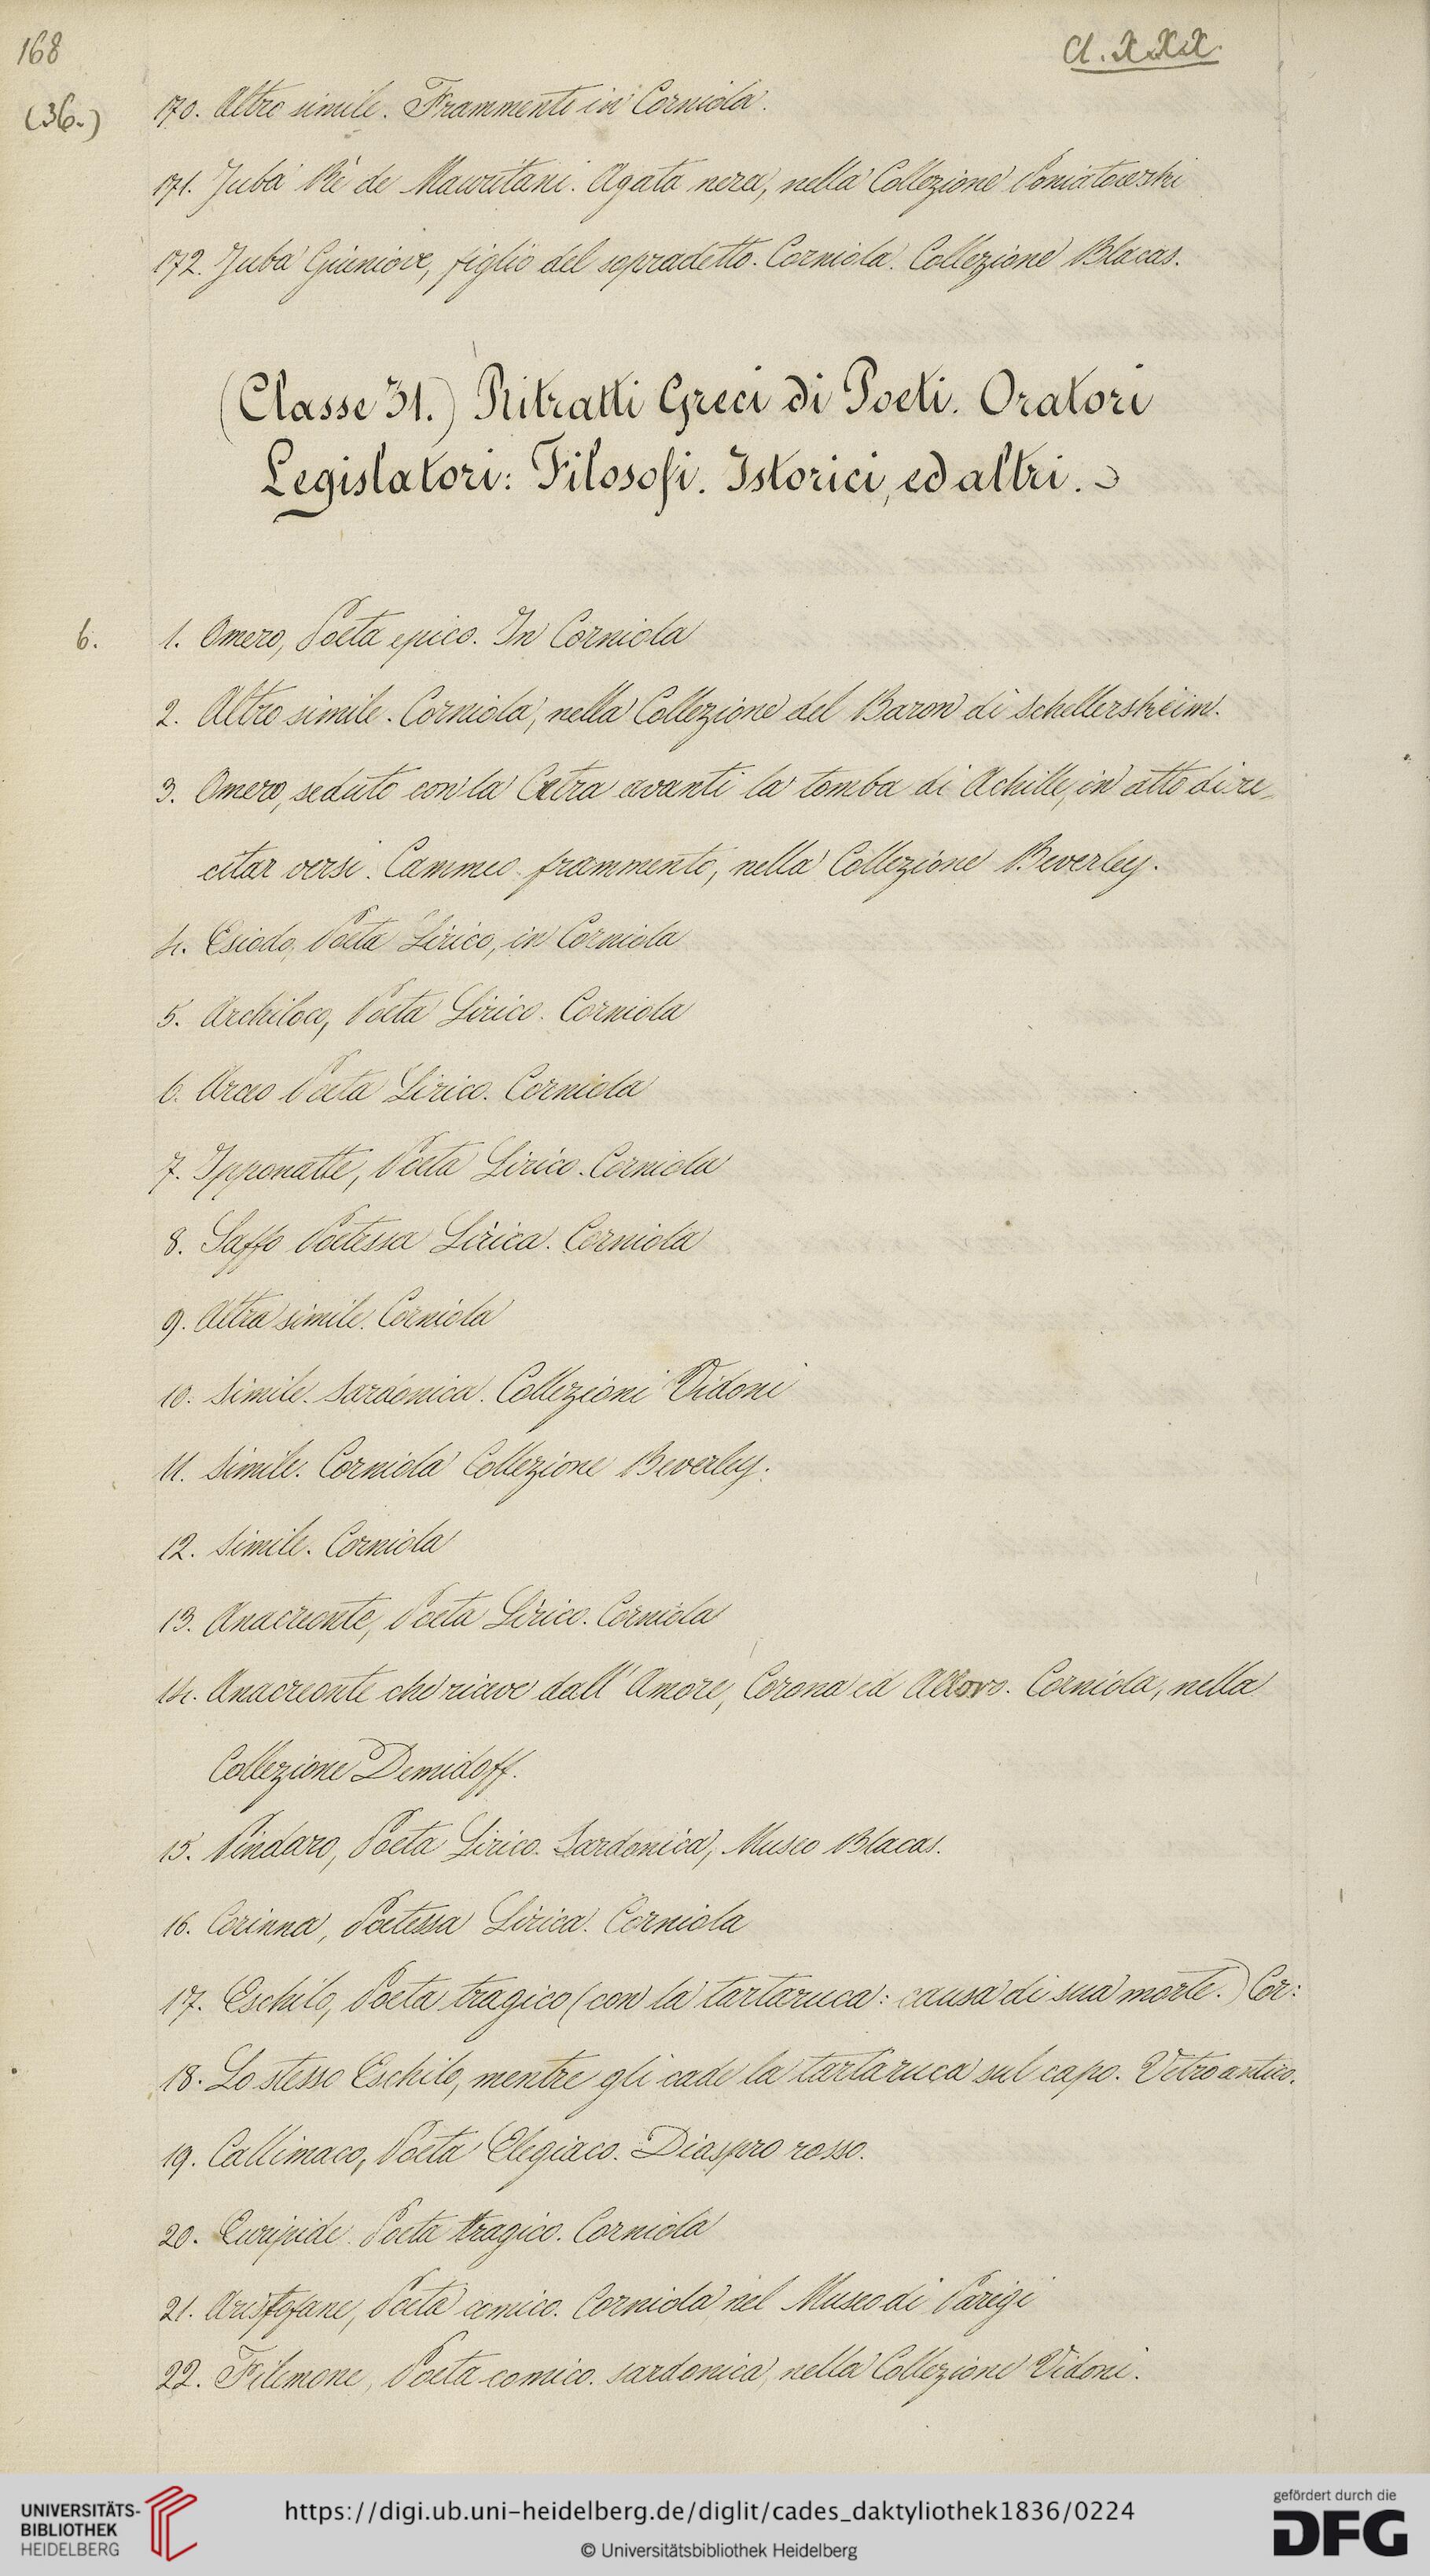 168
Cl. XXX.
(36.)
170. Altro simile. Frammento in Corniola.
171. Juba Rè de Mauritani. Agata nera, nella Collezione Poniatowski
172. Juba Giuniore, figlio del sopradetto. Corniola. Collezione Blacas.
(Classe 31.) Ritratti Greci di Poeti. Oratori
Legislatori: Filosofi. Istorici, ed altri.
6.
1. Omero, Poeta epico. In Corniola
2. Altro simile. Corniola, nella Collezione del Baron di Schellersheim.
3. Omero, seduto con la Cetra avanti la tomba di Achille, in atto di re-
citar versi. Cammeo frammento, nella Collezione Beverley.
4. Esiodo, Poeta Lirico, in Corniola
5. Archiloco, Poeta Lirico. Corniola
6. Poeta Lirico. Corniola
7. Ipponatte, Poeta Lirico. Corniola
8. Saffo Poetessa Lirica. Corniola
9. Altra simile. Corniola
10. Simile. Sardonica. Collezioni Vidoni
11. Simile. Corniola Collezione Beverley.
12. Simile. Corniola
13. Anacreonte, Poeta Lirico. Corniola
14. Anacreonte che riceve dall' Amore, Corona ed Alloro. Corniola, nella
Collezione Demidoff.
15. Pindaro, Poeta Lirico. Sardonica, Museo Blacas.
16. Corinna, Poetessa Lirica. Corniola
17. Eschilo, Poeta tragico (con la tartaruca: causa di sua morte.) Cor:
18. Lo stesso Eschilo, mentre gli cade la tartaruca sul capo. Vetro antico.
19. Callimaco, Poeta Elegiaco. Diaspro rosso.
20. Euripide. Poeta tragico. Corniola
21. Aristofane, Poeta comico. Corniola nel Museo di Parigi
22. Filemone, Poeta comico. sardonica, nella Collezione Vidoni.
UNIVERSITÄTS-
BIBLIOTHEK
HEIDELBERG
https://digi.ub.uni-heidelberg.de/diglit/cades_daktyliothek1836/0224
© Universitätsbibliothek Heidelberg
gefördert durch die
DFG